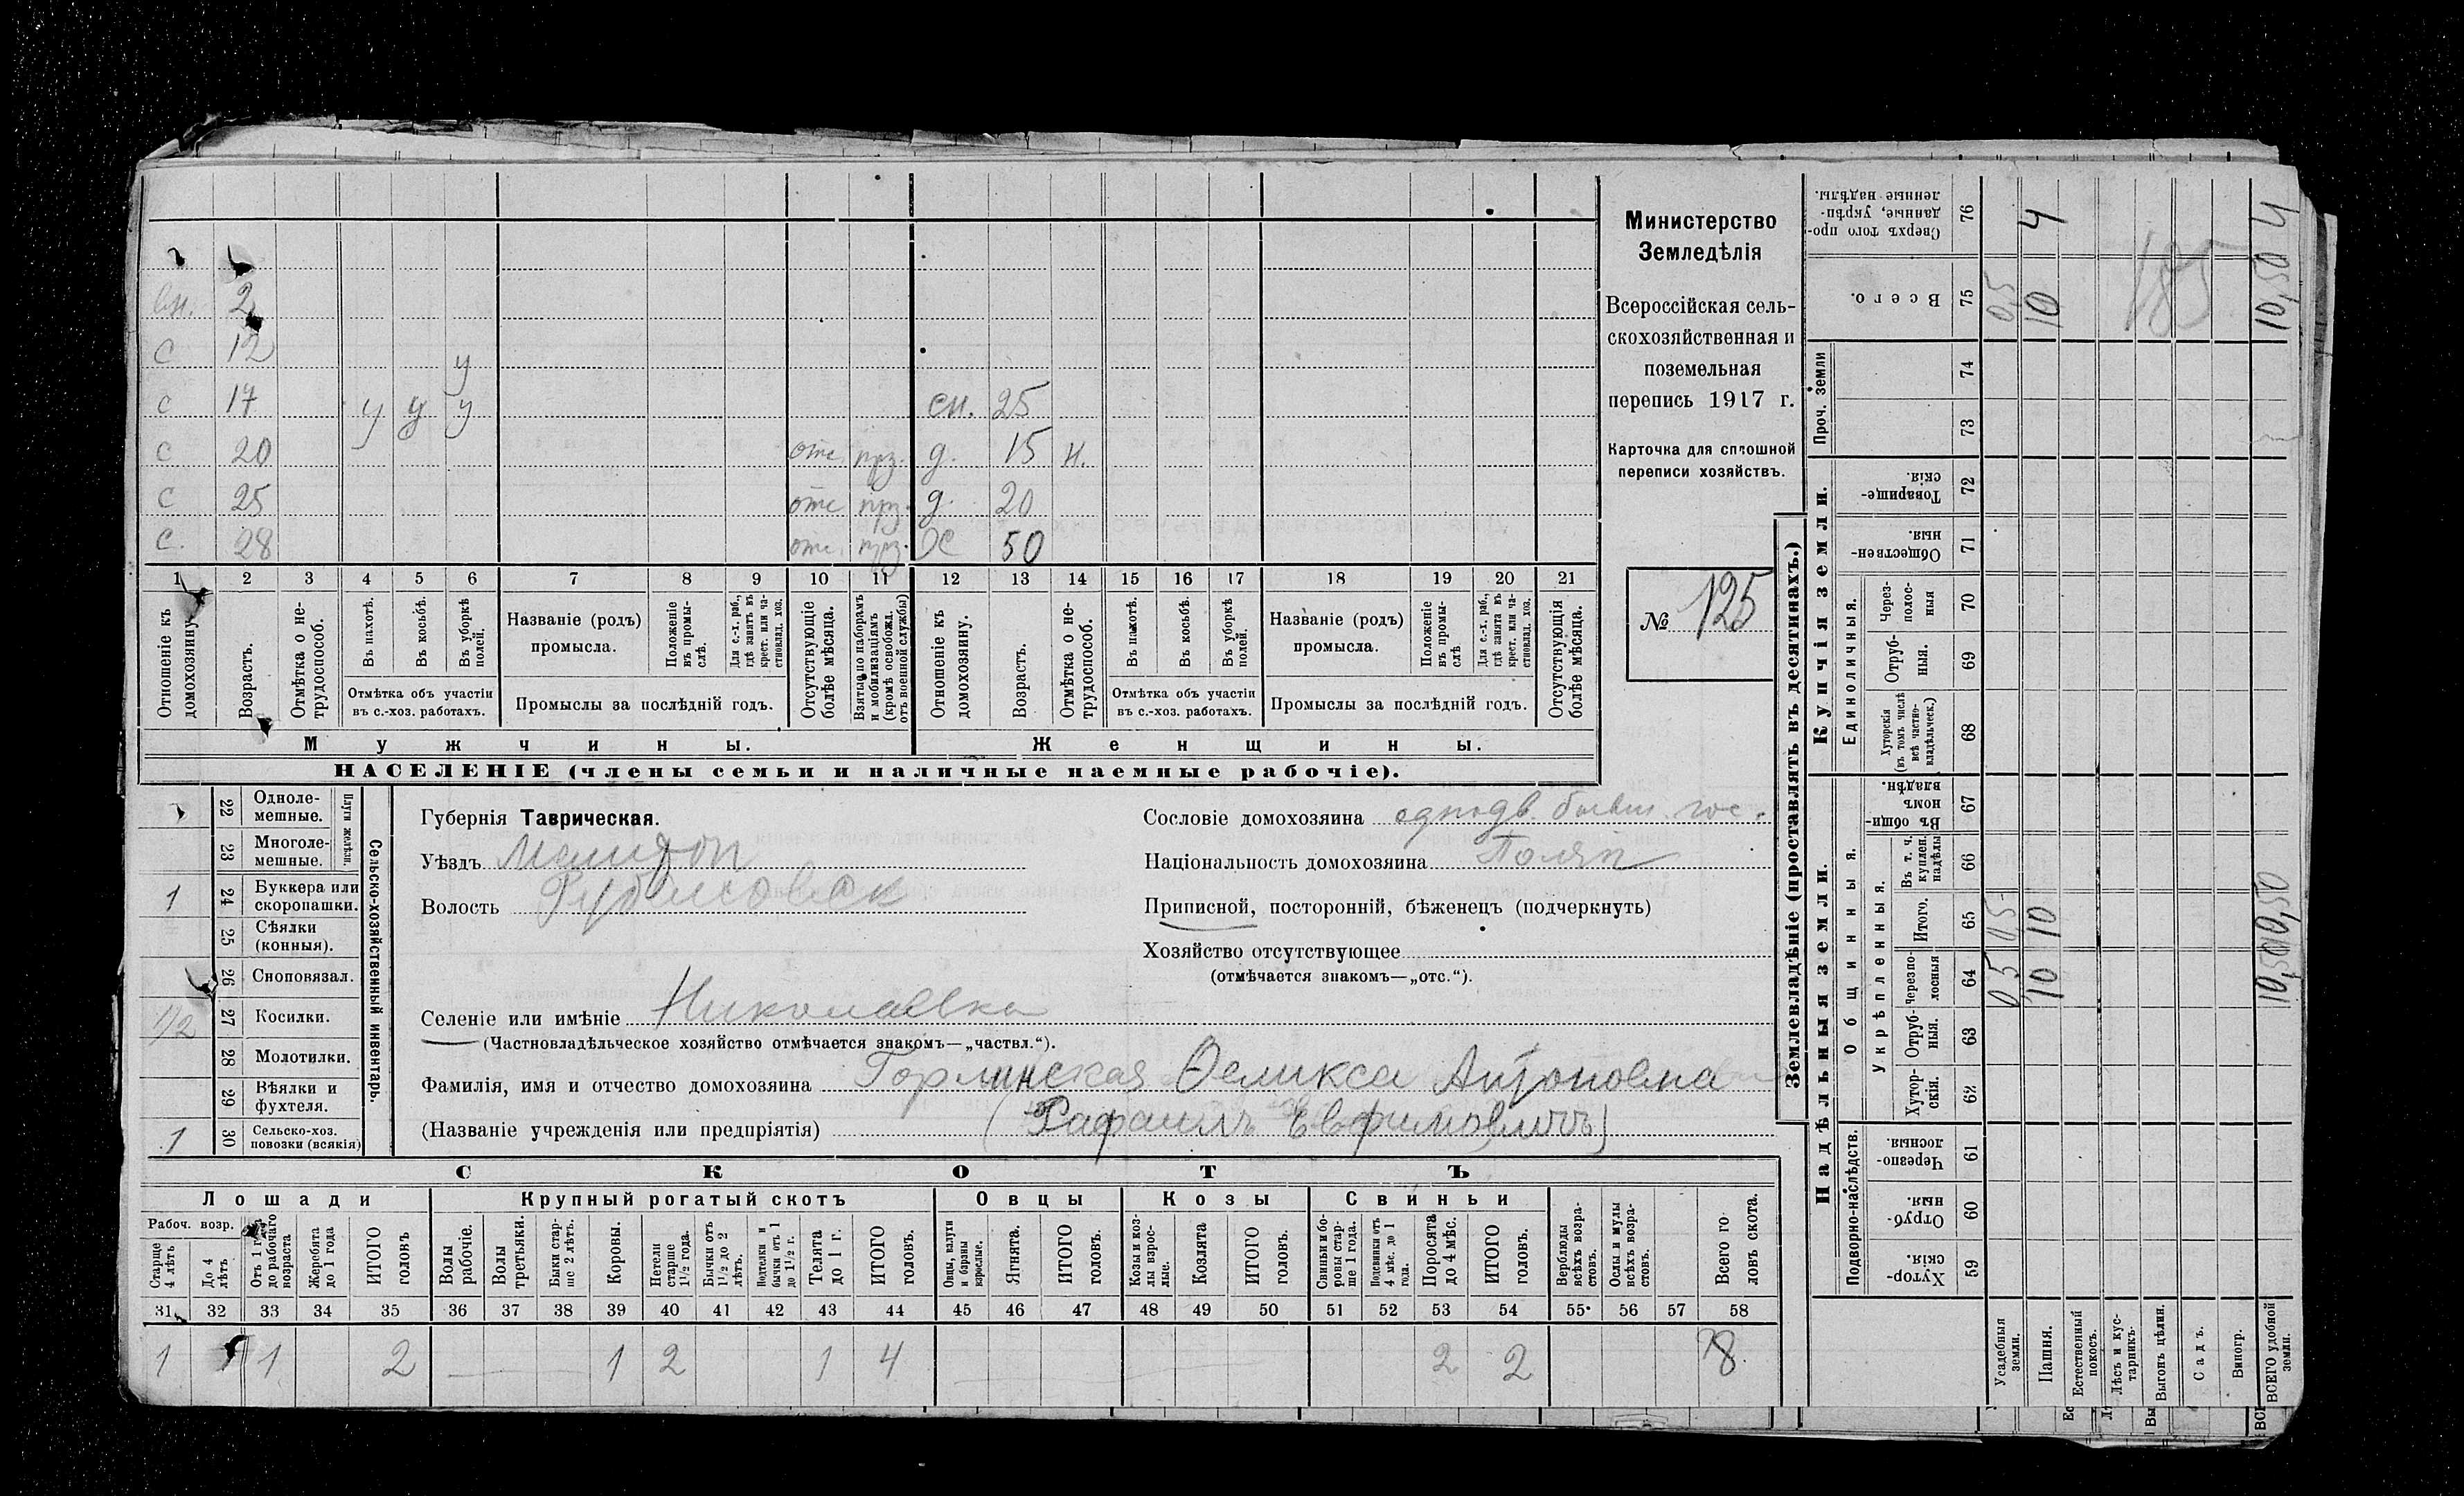 Министерство
Земледѣлія
Всероссійская сель-
скохозяйственная и
поземельная
перепись 1917 г.
Карточка для сплошной
переписи хозяйствъ.
№ 125
вн. 2
с 12 у
с 17 у у у сн. 25
с 20 отс прз. д. 15 н.
с 25 отс прз. д. 20
с. 28 отс прз. ОС 50
1 2 3 4 5 6 7 8 9 10 11 12 13 14 15 16 17 18 19 20 21
Отношеніе къ домохозяину.
Возрастъ.
Отмѣтка о не-трудоспособ.
Въ пахотѣ.
Въ косьбѣ.
Въ уборкѣ полей.
Отмѣтка объ участіи
въ с.-хоз. работахъ.
Названіе (родъ)
промысла.
Положеніе въ промы-слѣ.
Для с.-х. раб., гдѣ занятъ въ крест. или ча-стновлад. хоз.
Промыслы за послѣдній годъ.
Отсутствующіе болѣе мѣсяца.
Взятые по наборамъ и мобилизаціямъ (кромѣ освобожд. отъ военной службы)
Отношеніе къ домохозяину.
Возрастъ.
Отмѣтка о не-трудоспособ.
Въ пахотѣ.
Въ косьбѣ.
Въ уборкѣ полей.
Отмѣтка объ участіи
въ с.-хоз. работахъ.
Названіе (родъ)
промысла.
Положеніе въ промы-слѣ
Для с.-х. раб., гдѣ занята въ крест. или ча-стновлад. хоз.
Промыслы за послѣдній годъ.
Отсутствующія болѣе мѣсяца.
Мужчины.
Женщины.
НАСЕЛЕНІЕ (члены семьи и наличные наемные рабочіе).
22 Одноле-мешные.
23 Многоле-мешные.
Плуги желѣзн.
1 24 Буккера или скоропашки.
25 Сѣялки (конныя).
26 Сноповязал.
1/2 27 Косилки.
28 Молотилки.
29 Вѣялки и фухтеля.
1 30 Сельско-хоз. повозки (всякія)
Сельско-хозяйственный инвентарь.
Губернія Таврическая.
Уѣздъ Мелитоп
Волость
Селеніе или имѣніе Николаевка
(Частновладѣльческое хозяйство отмѣчается знакомъ—„частвл.“).
Фамилія, имя и отчество домохозяина Горлинская Феликса Антоновна
(Названіе учрежденія или предпріятія) (Рафаилъ Евфимовичъ)
Сословіе домохозяина однодв. бывш. гос.
Національность домохозяина Поляк
Приписной, посторонній, бѣженецъ (подчеркнуть)
Хозяйство отсутствующее
(отмѣчается знакомъ—„отс.“).
СКОТЪ
Лошади
Крупный рогатый скотъ
Овцы
Козы
Свиньи
Рабоч. возр.
Старше 4 лѣтъ
До 4 лѣтъ
Отъ 1 г. до рабочаго возраста
Жеребята до 1 года
ИТОГО головъ
Волы рабочіе.
Волы третьяки.
Быки стар-ше 2 лѣтъ.
Коровы.
Нетели старше 1½ года.
Бычки отъ 1½ до 2 лѣтъ.
Подтелки и бычки отъ 1 до 1½ г.
Телята до 1 г.
ИТОГО головъ.
Овцы, валухи и бараны взрослые.
Ягнята.
ИТОГО головъ.
Козы и коз-лы взрос-лые.
Козлята
ИТОГО головъ.
Свиньи и бо-ровы стар-ше 1 года.
Подсвинки отъ 4 мѣс. до 1 года.
Поросята до 4 мѣс.
ИТОГО головъ.
Верблюды всѣхъ возра-стовъ.
Ослы и мулы всѣхъ возра-стовъ.
Всего го-ловъ скота.
31 32 33 34 35 36 37 38 39 40 41 42 43 44 45 46 47 48 49 50 51 52 53 54 55 56 57 58
1 1 2 1 2 1 4 2 2 8
Землевладѣніе (проставлять въ десятинахъ.)
Надѣльныя земли.
Купчія земли.
Проч. земли
Подворно-наслѣдств.
Общинныя.
Укрѣпленныя.
Единоличныя.
Сверхъ того про-данные, укрѣп-ленные надѣлы. 76 4 4
Всего. 75 0,5 10 185 10,50
74
73
Товарище-скія 72
Обществен-ныя. 71
Через-полос-ныя 70
Отруб-ныя. 69
Хуторскія (въ томъ числѣ всѣ частно-владѣльческ.) 68
Въ общин-номъ владѣн. 67
Въ т. ч. куплен. надѣлы 66
Итого. 65 0,5 10 10,50
Черезпо-лосныя 64 0,5 10 10,50
Отруб-ныя. 63
Хутор-скія. 62
Черезпо-лосныя 61
Отруб-ныя. 60
Хутор-скія. 59
Усадебныя земли.
Пашня.
Естественный покосъ.
Лѣсъ и кус-тарникъ.
Выгонъ цѣлин.
Садъ.
Виногр.
ВСЕГО удобной земли.